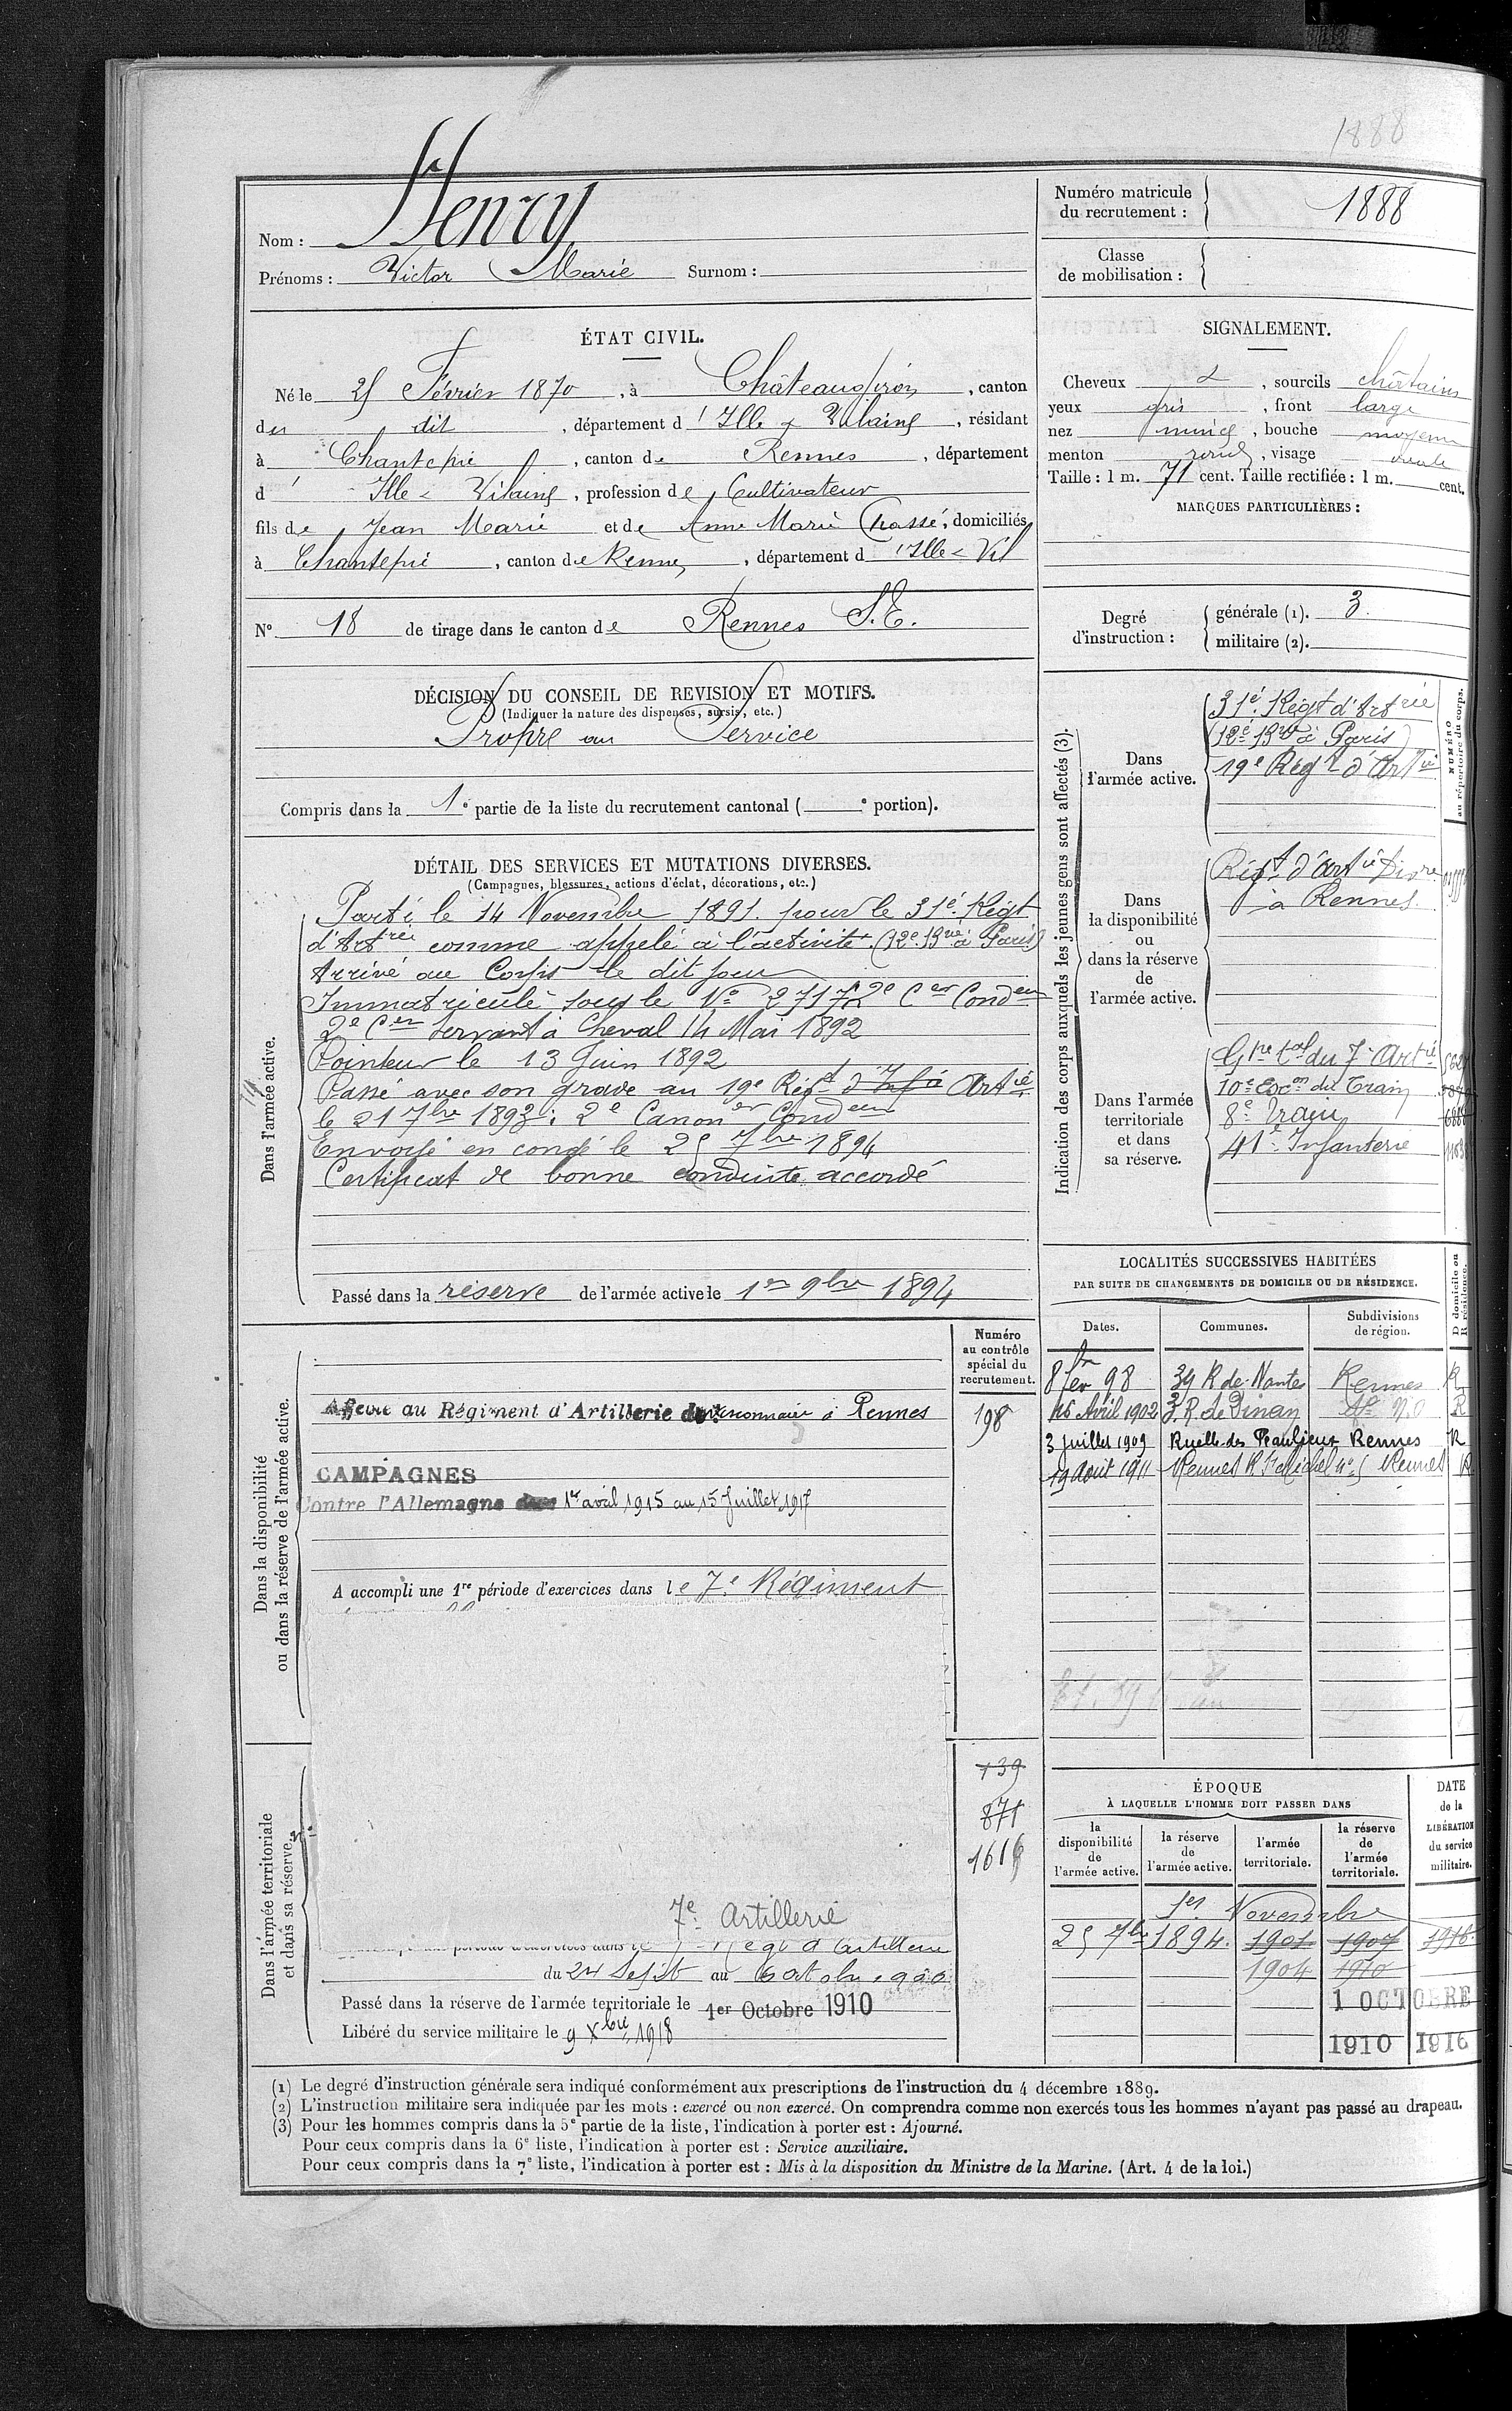 1888
Nom : Henry
Prénoms : Victor Marie Surnom :
Numéro matricule
du recrutement : 1888
Classe
de mobilisation :
ÉTAT CIVIL.
Né le 25 Février 1870, à Châteaugiron, canton
du dit, département d'Ille & Vilaine, résidant
à Chantepie, canton de Rennes, département
d' Ille & Vilaine, profession de Cultivateur
fils de Jean Marie et de Anne Marie Chassé, domiciliés
à Chantepie, canton de Rennes, département d'Ille & Vil
N° 18 de tirage dans le canton de Rennes S.E.
SIGNALEMENT.
Cheveux &, sourcils châtains
yeux gris, front large
nez mince, bouche moyenne
menton rond, visage ovale
Taille : 1 m. 71 cent. Taille rectifiée : 1 m. cent.
MARQUES PARTICULIÈRES :
Degré
d'instruction :
générale (1). 3.
militaire (2).
DÉCISION DU CONSEIL DE REVISION ET MOTIFS.
(Indiquer la nature des dispenses, sursis, etc.)
Propre au Service
Compris dans la 1e partie de la liste du recrutement cantonal ( e portion).
DÉTAIL DES SERVICES ET MUTATIONS DIVERSES.
(Campagnes, blessures, actions d'éclat, décorations, etc.)
Dans l'armée active.
Parti le 14 Novembre 1891. pour le 31e Régt
d'Artrie comme appelé à l'activité. (12e Bie à Paris)
Arrivé au Corps le dit jour
Immatriculé sous le N° 27172 2e Cer Condeur
2e Cer Servant à Cheval 14 Mai 1892
Pointeur le 13 Juin 1892
Passé avec son grade au 19e Régt d'Infie Artie
le 21 7bre 1893 : 2e Canoner Condeur
Envoyé en congé le 25 7bre 1894
Certificat de bonne conduite accordé
Passé dans la réserve de l'armée active le 1er 9bre 1894
Indication des corps auxquels les jeunes gens sont affectés (3).
NUMÉRO
au répertoire du corps.
Dans
l'armée active.
31e Régt d'Artrie
(12e Bie à Paris)
19e Régt d'Artie
Dans
la disponibilité
ou
dans la réserve
de
l'armée active.
Régt d'Artie Divre
à Rennes.
Dans l'armée
territoriale
et dans
sa réserve.
Gpe tal du 7e Artie
10e Escon du Train
8e Train
41e Infanterie
LOCALITÉS SUCCESSIVES HABITÉES
PAR SUITE DE CHANGEMENTS DE DOMICILE OU DE RÉSIDENCE.
Dates. Communes. Subdivisions
de région.
D domicile ou
R résidence.
8 fer 98 39 R de Nantes Rennes R
16 Avril 1902 3 R de Dinan N.O R
3 juillet 1909 Ruelle des Beaulieux Rennes R
19 Août 1911 Rennes R St Michel n° 5 Rennes R
Dans la disponibilité
ou dans la réserve de l'armée active.
Numéro
au contrôle
spécial du
recrutement.
Affecté au Régiment d'Artillerie divisionnaire à Rennes 198
CAMPAGNES
Contre l'Allemagne 1er avril 1915 au 15 Juillet 1917
A accompli une 1re période d'exercices dans le 7e Régiment
Dans l'armée territoriale
et dans sa réserve.
139
871
1616
7e Artillerie
du 24 Sept au 6 octobre 1900
Passé dans la réserve de l'armée territoriale le 1er Octobre 1910
Libéré du service militaire le 9 Xbre 1918
ÉPOQUE
À LAQUELLE L'HOMME DOIT PASSER DANS
la
disponibilité
de
l'armée active.
la réserve
de
l'armée active.
l'armée
territoriale.
la réserve
de
l'armée
territoriale.
DATE
de la
LIBÉRATION
du service
militaire.
1er Novembre
25 7bre 1894. 1901 1907 1916.
1904 1910
1 OCTOBRE
1910 1916
(1) Le degré d'instruction générale sera indiqué conformément aux prescriptions de l'instruction du 4 décembre 1889.
(2) L'instruction militaire sera indiquée par les mots : exercé ou non exercé. On comprendra comme non exercés tous les hommes n'ayant pas passé au drapeau.
(3) Pour les hommes compris dans la 5e partie de la liste, l'indication à porter est : Ajourné.
Pour ceux compris dans la 6e liste, l'indication à porter est : Service auxiliaire.
Pour ceux compris dans la 7e liste, l'indication à porter est : Mis à la disposition du Ministre de la Marine. (Art. 4 de la loi.)